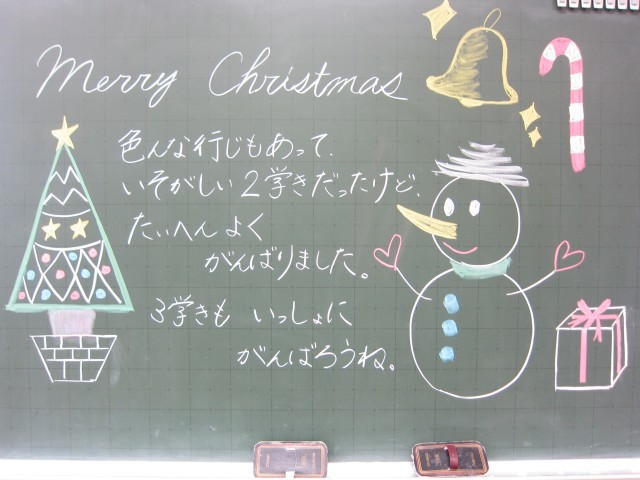 Merry Christmas
色んな行じもあって、
いそがしい２学きだったけど、
たいへんよく
がんばりました。
３学きも いっしょに
がんばろうね。